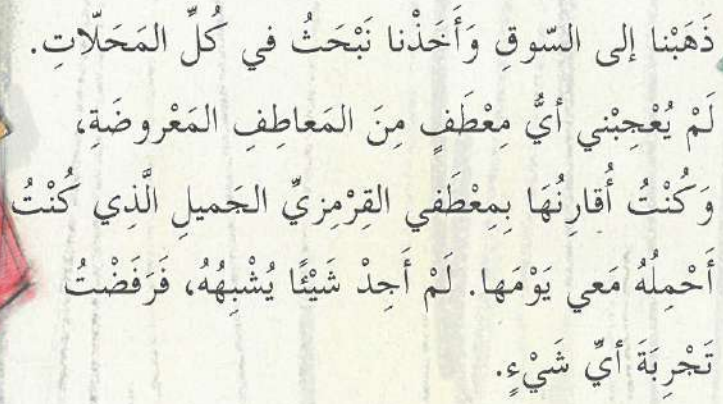 ذَهَبْنا إلى السّوقِ وَأَخَذْنا نَبْحَثُ في كُلِّ المَحَلّاتِ.
لَمْ يُعْجِبْني أيُّ مِعْطَفٍ مِنَ المَعاطِفِ المَعْروضَةِ،
وَكُنْتُ أُقارِنُهَا بِمِعْطَفي القِرْمِزيِّ الجَميلِ الَّذِي كُنْتُ
أَحْمِلُهُ مَعي يَوْمَها. لَمْ أَجِدْ شَيْئًا يُشْبِهُهُ، فَرَفَضْتُ
تَجْرِبَةَ أيِّ شَيْءٍ.